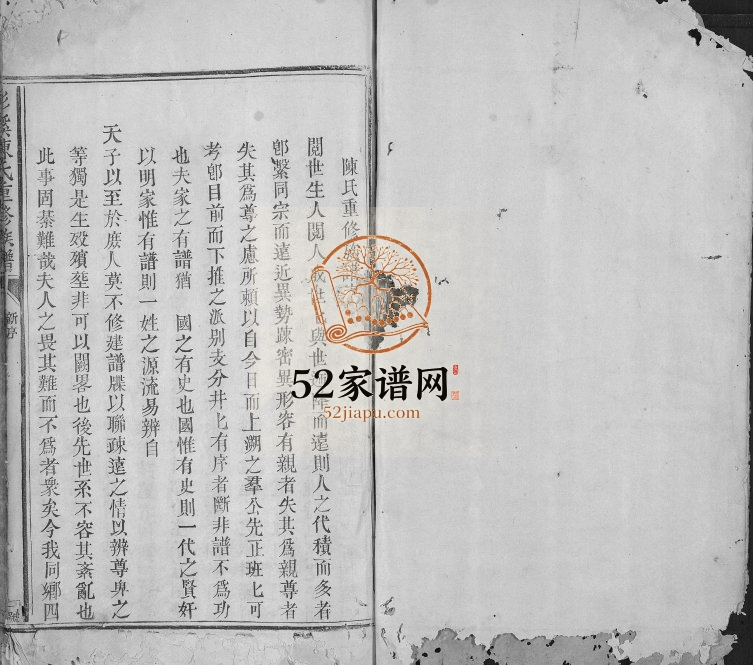 陳氏重修
閱世生人閱人
與世
而遠則人之代積而多者
卽繫同宗而遠近異勢疎密異形容有親者失其爲親尊者
失其爲尊之慮所賴以自今日而上溯之羣公先正班匕可
考卽目前而下推之派别支分井匕有序者斷非譜不爲功
也夫家之有譜猶 國之有史也國惟有史則一代之賢奸
以明家惟有譜則一姓之源流易辨自
天子以至於庶人莫不修建譜牒以聯疎遠之情以辨尊卑之
等獨是生歿殯塟非可以闕畧也後先世系不容其紊亂也
此事固綦難哉夫人之畏其難而不爲者衆矣今我同鄉四
陳氏重修族譜
新序
52家谱网
52jiapu.com